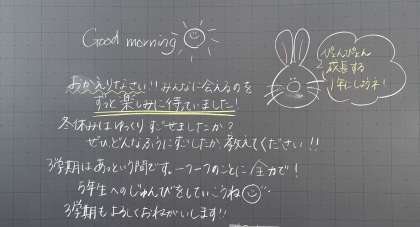 Good morning
おかえりなさい!! みんなに会えるのを
ずっと楽しみに待っていました!
冬休みはゆっくりすごせましたか?
ぜひどんなふうにすごしたか教えてください!!
3学期はあっという間です。一つ一つのことに全力で!
5年生へのじゅんびをしていこうね
3学期もよろしくおねがいします!!
ぴょんぴょん
成長する
1年にしようネ!